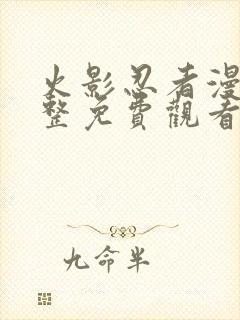 火影忍者漫
整免費觀看
九命半